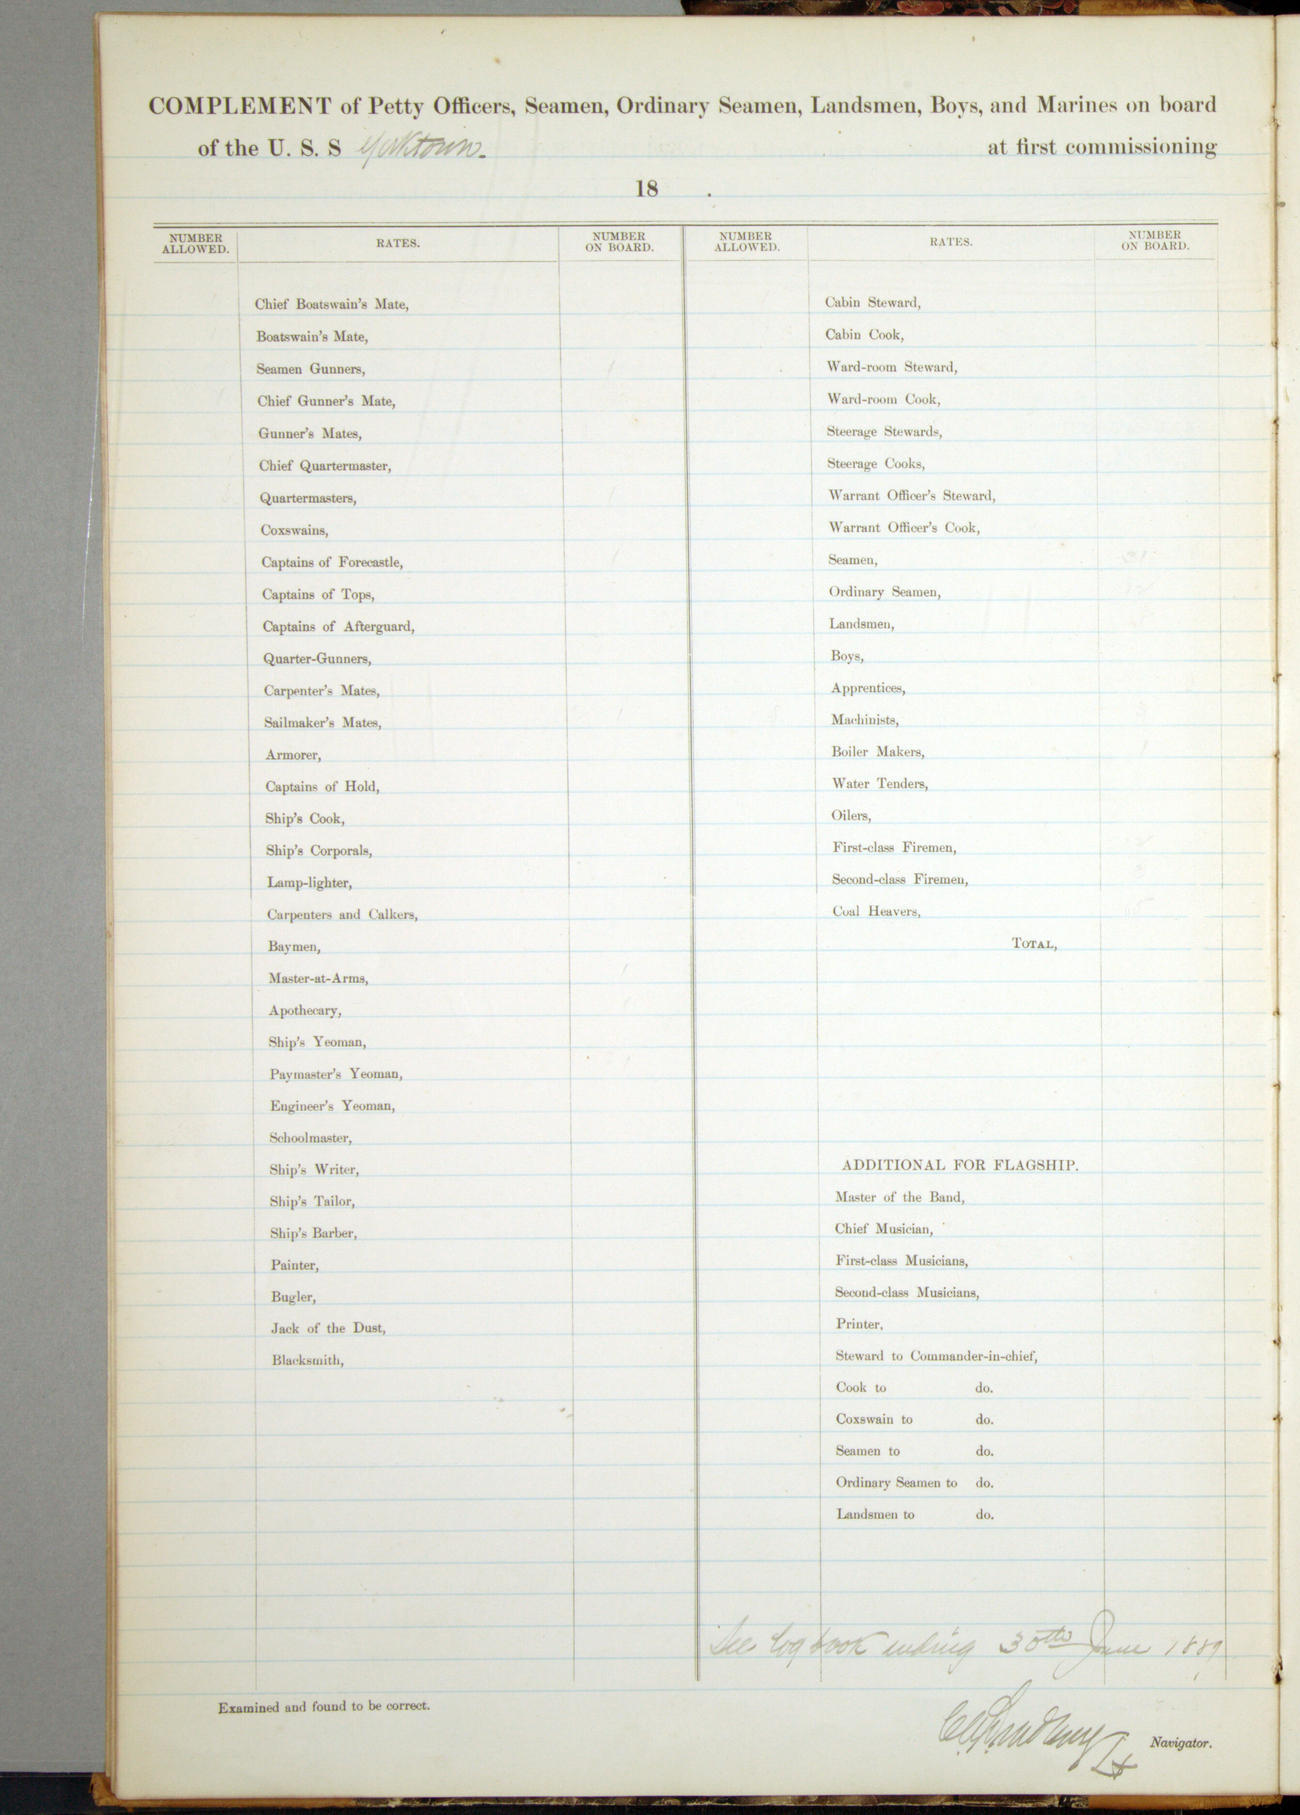 COMPLEMENT of Petty Officers, Seamen, Ordinary Seamen, Landsmen, Boys, and Marines on board
of the U. S. S Yorktown. at first commissioning
18 .
NUMBER ALLOWED. RATES. NUMBER ON BOARD. NUMBER ALLOWED. RATES. NUMBER ON BOARD.
Chief Boatswain's Mate,
Boatswain's Mate,
Seamen Gunners,
Chief Gunner's Mate,
Gunner's Mates,
Chief Quartermaster,
Quartermasters,
Coxswains,
Captains of Forecastle,
Captains of Tops,
Captains of Afterguard,
Quarter-Gunners,
Carpenter's Mates,
Sailmaker's Mates,
Armorer,
Captains of Hold,
Ship's Cook,
Ship's Corporals,
Lamp-lighter,
Carpenters and Calkers,
Baymen,
Master-at-Arms,
Apothecary,
Ship's Yeoman,
Paymaster's Yeoman,
Engineer's Yeoman,
Schoolmaster,
Ship's Writer,
Ship's Tailor,
Ship's Barber,
Painter,
Bugler,
Jack of the Dust,
Blacksmith,
Cabin Steward,
Cabin Cook,
Ward-room Steward,
Ward-room Cook,
Steerage Stewards,
Steerage Cooks,
Warrant Officer's Steward,
Warrant Officer's Cook,
Seamen,
Ordinary Seamen,
Landsmen,
Boys,
Apprentices,
Machinists,
Boiler Makers,
Water Tenders,
Oilers,
First-class Firemen,
Second-class Firemen,
Coal Heavers,
TOTAL,
ADDITIONAL FOR FLAGSHIP.
Master of the Band,
Chief Musician,
First-class Musicians,
Second-class Musicians,
Printer,
Steward to Commander-in-chief,
Cook to do.
Coxswain to do.
Seamen to do.
Ordinary Seamen to do.
Landsmen to do.
See log book ending 30th June 1889
Examined and found to be correct.
Navigator.